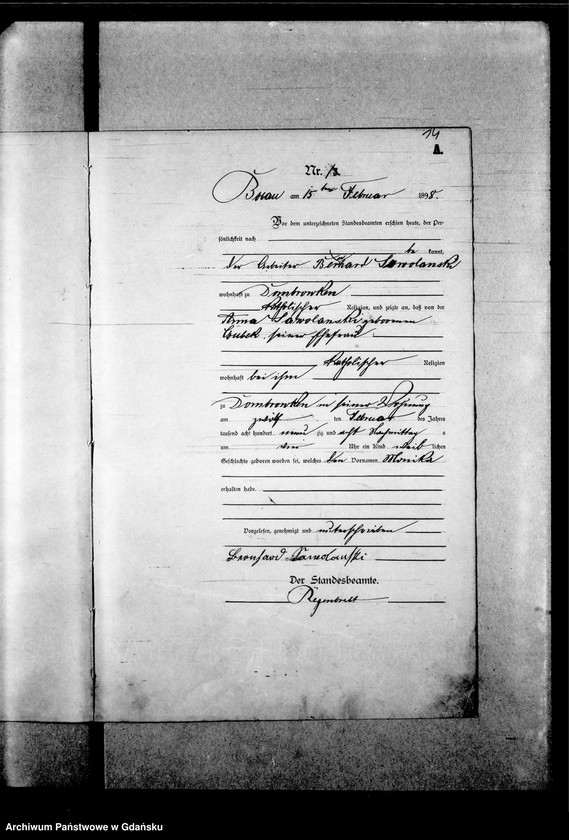 14
A.
Nr. 13.
Bonau am 15 ten Februar 1898.
Vor dem unterzeichneten Standesbeamten erschien heute, der Per-
sönlichkeit nach
be kannt,
der Arbeiter Bernhard Sawolanski
wohnhaft zu Dombrowken
katholischer Religion, und zeigte an, daß von der
Anna Sawolanski geborenen
seiner Ehefrau
katholischer Religion
wohnhaft bei ihm
zu Dombrowken in seiner Wohnung
am zwölf ten Februar des Jahres
tausend acht hundert neun zig und acht Nachmittag s
um Uhr ein Kind weib lichen
Geschlechts geboren worden sei, welches den Vornamen Monika
erhalten habe.
Vorgelesen, genehmigt und unterschrieben
Bernhard Sawolanski
Der Standesbeamte.
Archiwum Państwowe w Gdańsku